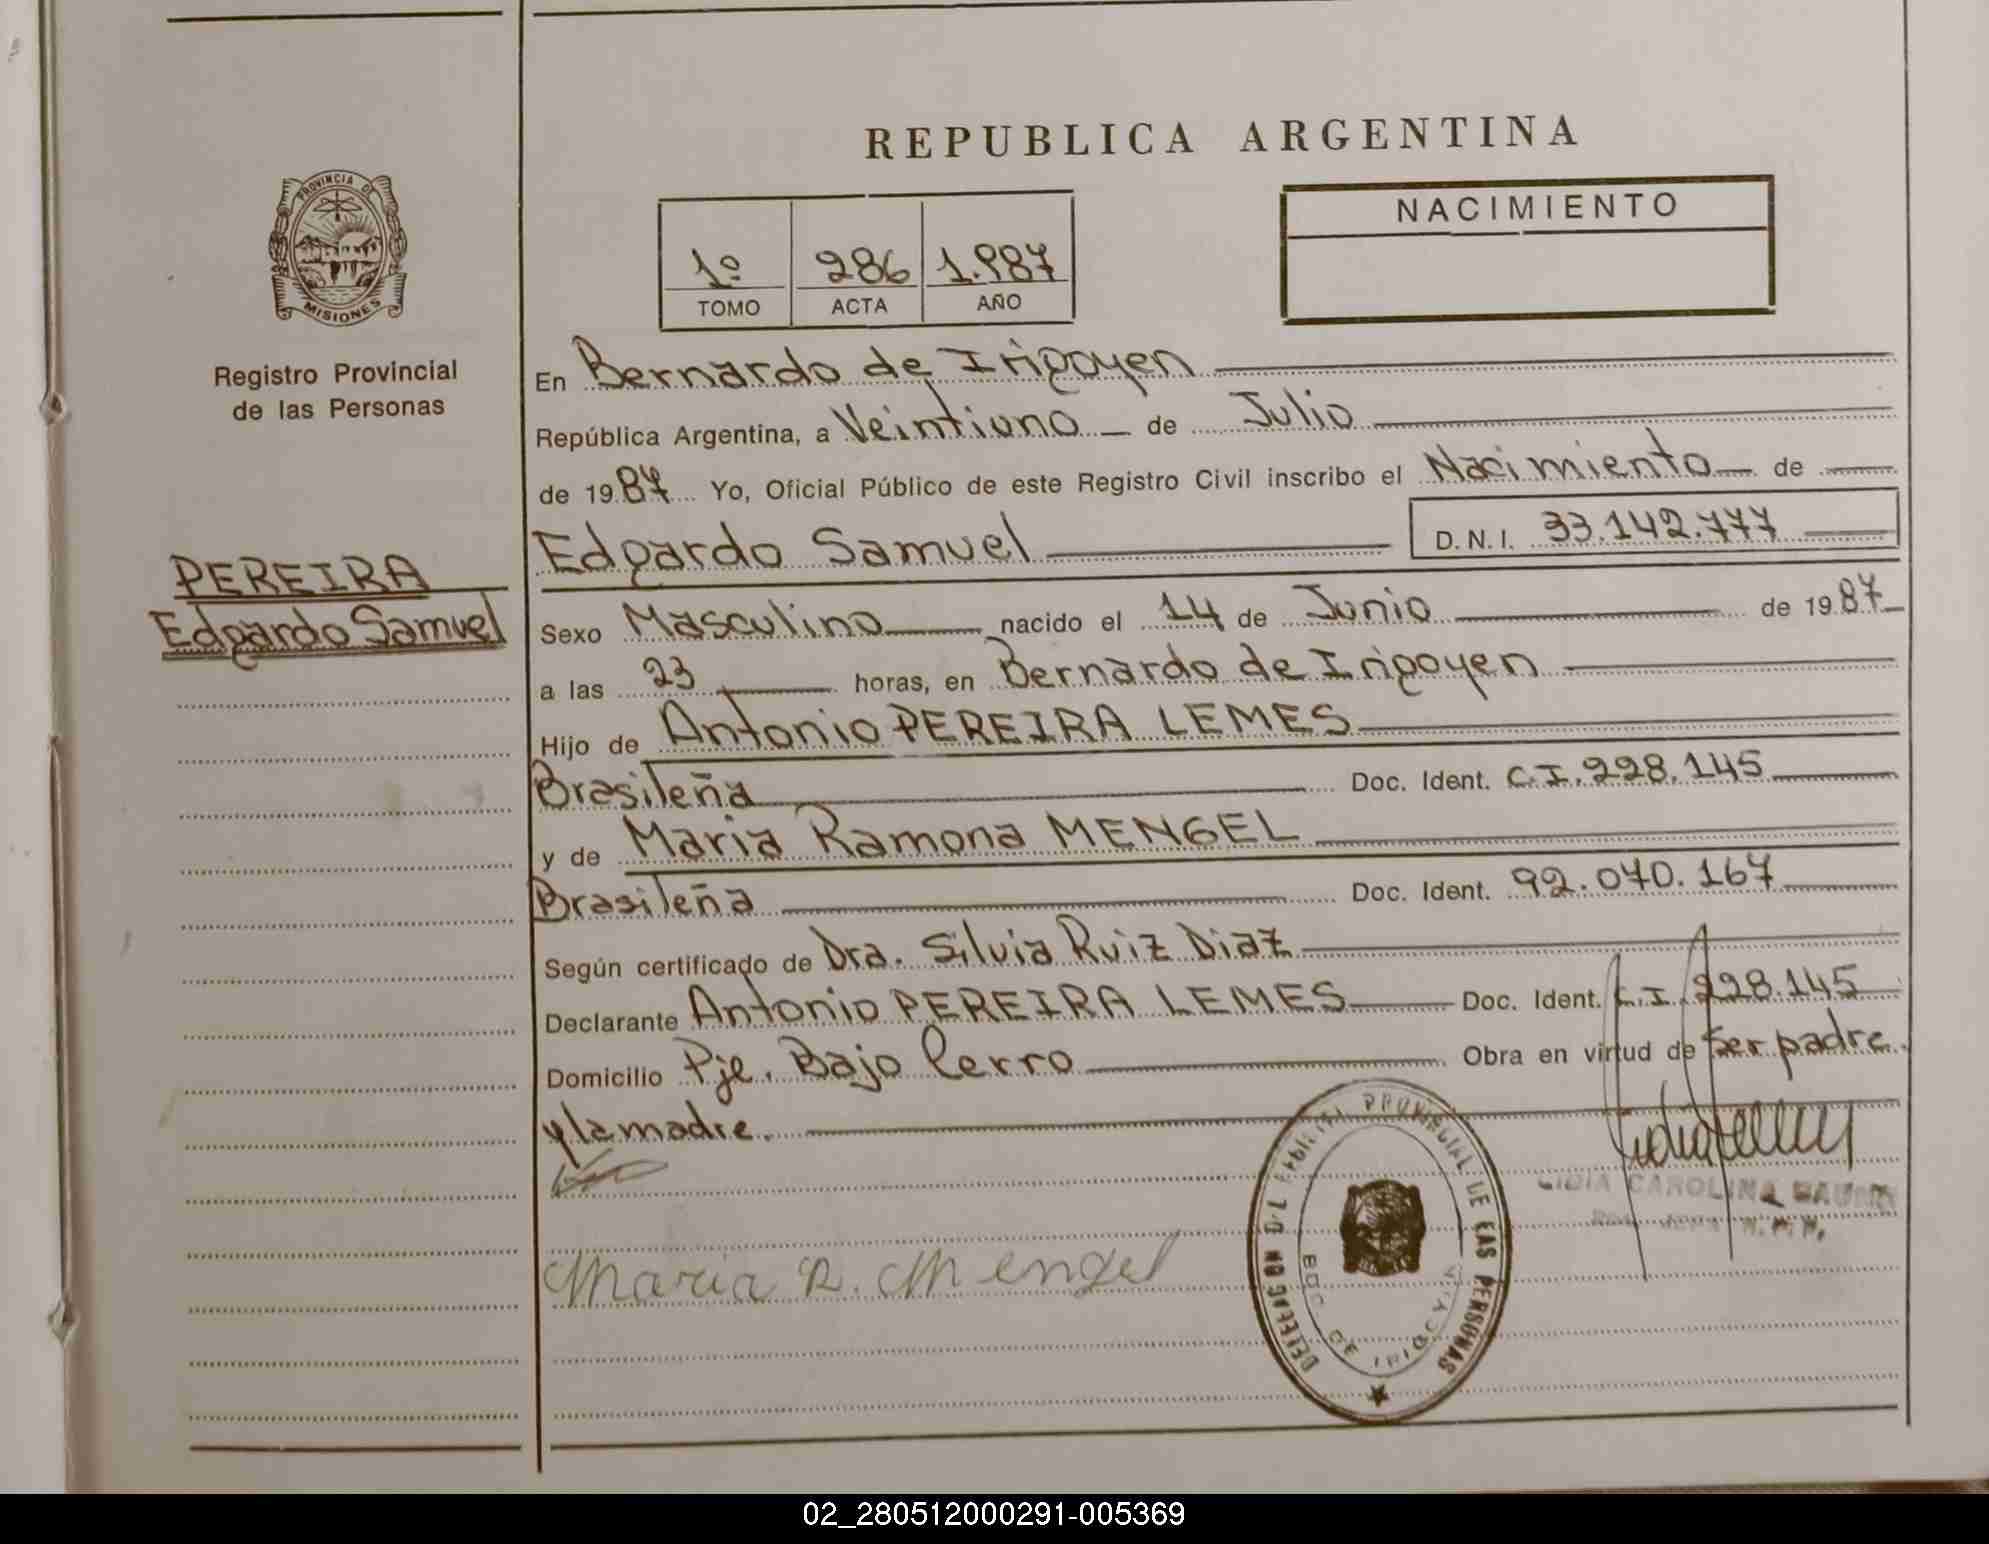 REPUBLICA ARGENTINA
PROVINCIA DE
MISIONES
Registro Provincial
de las Personas
PEREIRA
Edgardo Samuel
NACIMIENTO
1º 286 1.987
TOMO ACTA AÑO
En Bernardo de Irigoyen
República Argentina, a Veintiuno de Julio
de 1987 Yo, Oficial Público de este Registro Civil inscribo el Nacimiento de
Edgardo Samuel D.N.I. 33.142.777
Sexo Masculino nacido el 14 de Junio de 1987
a las 23 horas, en Bernardo de Irigoyen
Hijo de Antonio PEREIRA LEMES
Brasileña Doc. Ident. C.I. 228.145
y de Maria Ramona MENGEL
Brasileña Doc. Ident. 92.070.167
Según certificado de Dra. Silvia Ruiz Diaz
Declarante Antonio PEREIRA LEMES Doc. Ident. C.I. 228.145
Domicilio Pje. Bajo Cerro Obra en virtud de ser padre
y la madre.
Maria R. Mengel
PROVINCIAL DE LAS PERSONAS
LIDIA CAROLINA
02_280512000291-005369